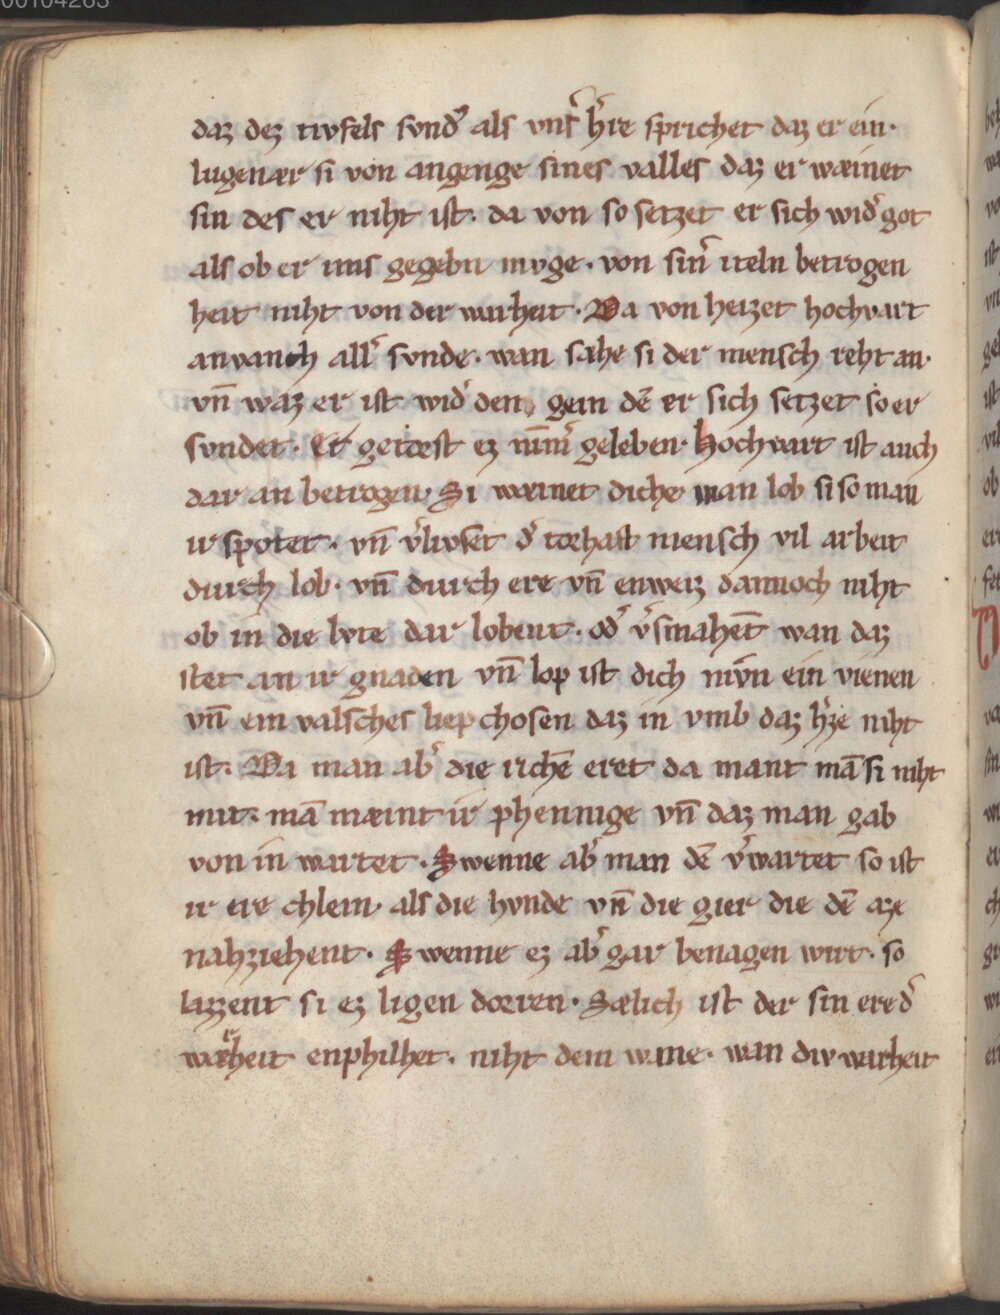 00104263
daz dez tivfels svndˀ als vnsˀ hˀre sprichet daz er ein·
lugenær si von angenge sines valles daz er wæinet
sin des er niht ist· da von so setzet er sich widˀ got
als ob er ims gegebn mvge· von sinˀ iteln betrogen
heit niht von der warheit· Da von heizet hochvart
anvanch allˀ svnde· wan sæhe si der mensch reht an·
vn̄ waz er ist widˀ den, gein dē er sich setzet so er
svndet· Er getorst ez nimmˀ geleben· Hochvart ist auch
dar an betrogen· Si wæinet diche man lob si so man
ir spotet· vn̄ vˀlivset dˀ torhaft mensch vil arbeit
durch lob· vn̄ durch ere vn̄ enweiz dannoch niht
ob in die lvte dar lobent· odˀ vˀsmahent wan daz
stet an ir gnaden vn̄ lop ist dich nivn ein vienen
vn̄ ein valsches liep chosen daz in vmb daz hˀze niht
ist· Da man abˀ die richē eret da maint mā si niht
mit· mā mæint ir phennige vn̄ daz man gab
von in wartet· Swenne abˀ man dē vˀwartet so ist
ir ere chlein· als die hvnde vn̄ die gier die dē aze
nahziehent· Swenne ez abˀ gar benagen wirt· so
lazzent si ez ligen dorren· Sælich ist der sin ere dˀ
warheit enphilhet· niht dem wane· wan div warheit